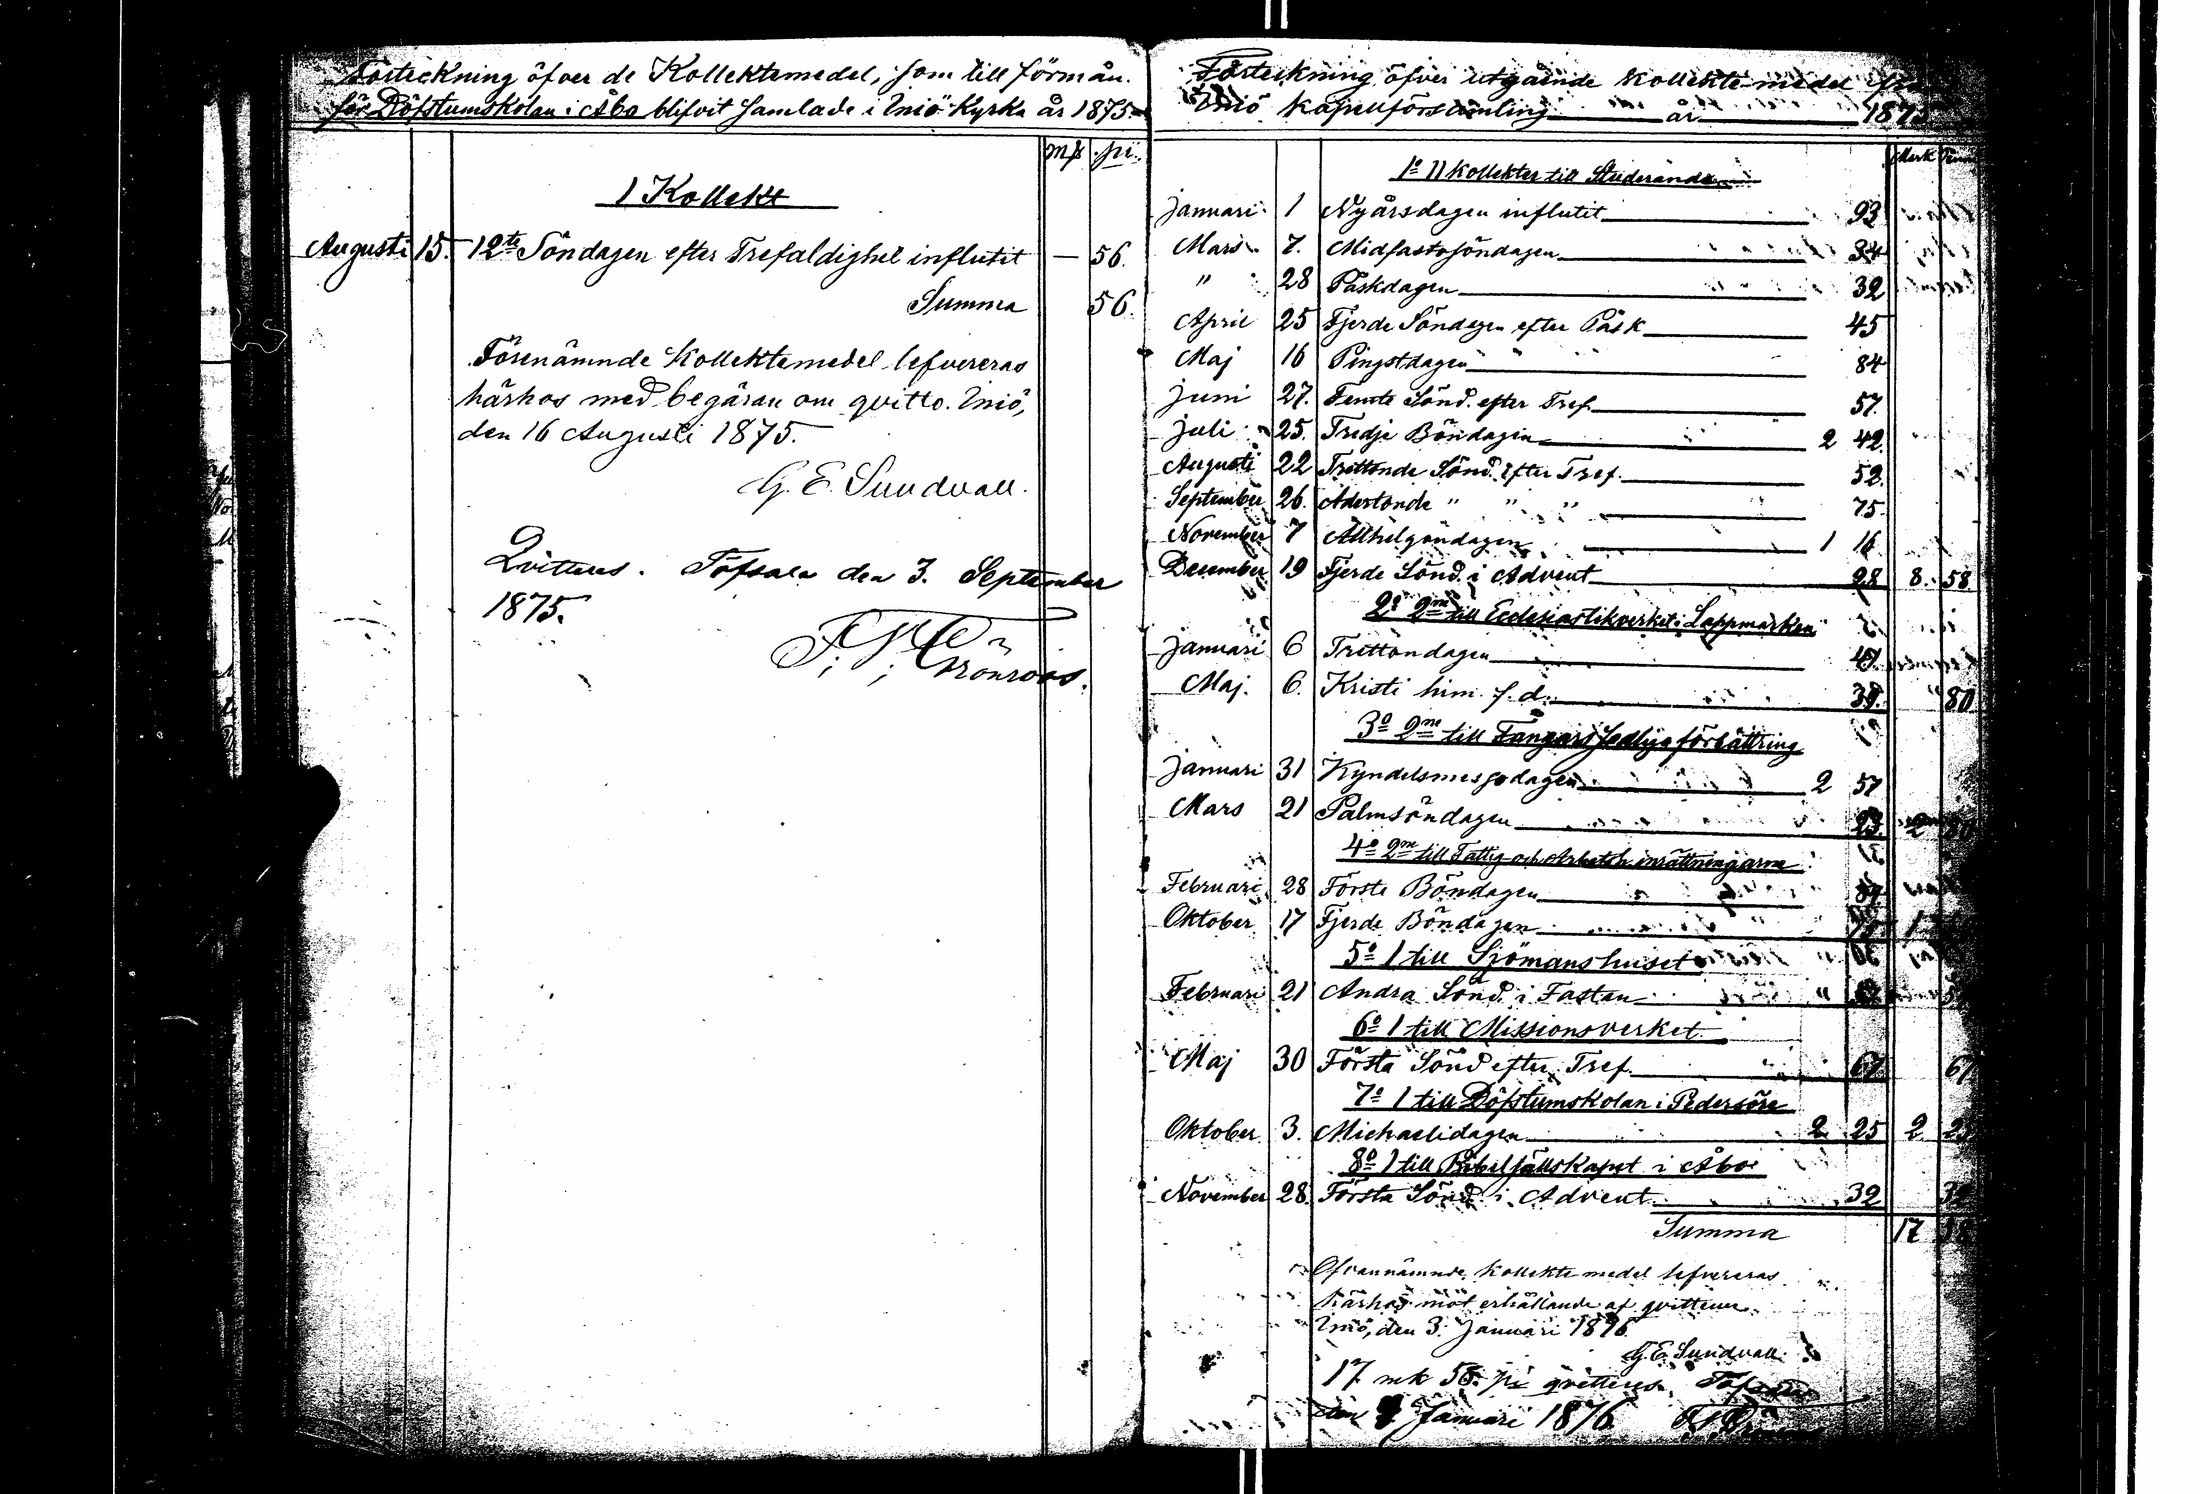 Förteckning öfver de Kollektemedel, som till förmån
för Döfstumskolan i Åbo blifvit samlade i Iniö Kyrka år 1875.
mk pi.
1 Kollekt
Augusti 15. 12te Söndagen efter Trefaldighet influtit — 56.
Summa 56.
Förenämnde Kollektemedel lefvereras
härhos med begäran om qvitto. Iniö,
den 16 Augusti 1875.
G. E. Sundvall.
Qvitteras. Töfsala den 3. September
1875.
Grönroos.
Förteckning öfver utgående Kollekte-medel
Iniö Kapellförsamling år 1875
Mark
1o 11 Kollekter till Studerande
Januari 1 Nyårsdagen influtit 93
Mars 7. Midfastosöndagen 34
" 28 Påskdagen 32
April 25 Fjerde Söndagen efter Påsk 45
Maj 16 Pingstdagen 84
Juni 27. Femte Sönd. efter Tref. 57.
Juli 25. Tredje Böndagen 2 42
Augusti 22 Trettonde Sönd. efter Tref. 52.
September 26. Adertonde " " " 75.
November 7 Allhelgondagen 1 16
December 19 Fjerde Sönd. i Advent 28 8. 58
2o 2ne till Ecclesiastikverket i Lappmarken
Januari 6 Trettondagen 41.
Maj. 6. Kristi him. f. d. 39. " 80
3o 2ne till Fångars sedliga förbättring
Januari 31 Kyndelsmessodagen 2 57
Mars 21 Palmsöndagen 23. 2 80
4o 2ne till Fattig och Arbets inrättningarne
Februari 28 Förste Böndagen
Oktober 17 Fjerde Böndagen 1
5o 1 till Sjömanshuset
Februari 21 Andra Sönd. i Fastan "
6o 1 till Missionsverket
Maj 30 Första Sönd efter Tref. 67. 67
7o 1 till Döfstumskolan i Pedersöre
Oktober 3. Michaelidagen 2 25 2 25
8o 1 till Bibelsällskapet i Åbo
November 28. Första Sönd. i Advent 32 32
Summa 17
Ofvannämnde Kollekte medel lefvereras
härhos mot erhållande af qvittens.
Iniö, den 3. Januari 1876
G. E. Sundvall.
17 mk 58 pi qvitteras,
den Januari 1876